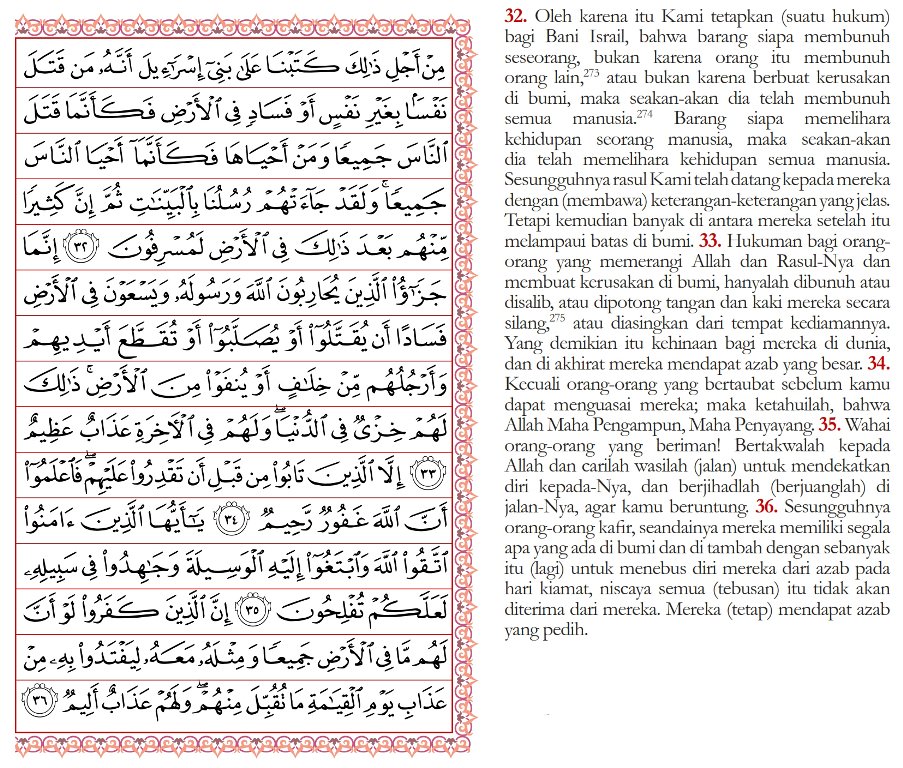 مِنْ أَجْلِ ذَٰلِكَ كَتَبْنَا عَلَىٰ بَنِىٓ إِسْرَٰٓءِيلَ أَنَّهُۥ مَن قَتَلَ
نَفْسًۢا بِغَيْرِ نَفْسٍ أَوْ فَسَادٍ فِى ٱلْأَرْضِ فَكَأَنَّمَا قَتَلَ
ٱلنَّاسَ جَمِيعًا وَمَنْ أَحْيَاهَا فَكَأَنَّمَآ أَحْيَا ٱلنَّاسَ
جَمِيعًا ۚ وَلَقَدْ جَآءَتْهُمْ رُسُلُنَا بِٱلْبَيِّنَٰتِ ثُمَّ إِنَّ كَثِيرًا
مِّنْهُم بَعْدَ ذَٰلِكَ فِى ٱلْأَرْضِ لَمُسْرِفُونَ ٣٢ إِنَّمَا
جَزَٰٓؤُا۟ ٱلَّذِينَ يُحَارِبُونَ ٱللَّهَ وَرَسُولَهُۥ وَيَسْعَوْنَ فِى ٱلْأَرْضِ
فَسَادًا أَن يُقَتَّلُوٓا۟ أَوْ يُصَلَّبُوٓا۟ أَوْ تُقَطَّعَ أَيْدِيهِمْ
وَأَرْجُلُهُم مِّنْ خِلَٰفٍ أَوْ يُنفَوْا۟ مِنَ ٱلْأَرْضِ ۚ ذَٰلِكَ
لَهُمْ خِزْىٌ فِى ٱلدُّنْيَا ۖ وَلَهُمْ فِى ٱلْـَٔاخِرَةِ عَذَابٌ عَظِيمٌ
٣٣ إِلَّا ٱلَّذِينَ تَابُوا۟ مِن قَبْلِ أَن تَقْدِرُوا۟ عَلَيْهِمْ ۖ فَٱعْلَمُوٓا۟
أَنَّ ٱللَّهَ غَفُورٌ رَّحِيمٌ ٣٤ يَٰٓأَيُّهَا ٱلَّذِينَ ءَامَنُوا۟
ٱتَّقُوا۟ ٱللَّهَ وَٱبْتَغُوٓا۟ إِلَيْهِ ٱلْوَسِيلَةَ وَجَٰهِدُوا۟ فِى سَبِيلِهِۦ
لَعَلَّكُمْ تُفْلِحُونَ ٣٥ إِنَّ ٱلَّذِينَ كَفَرُوا۟ لَوْ أَنَّ
لَهُم مَّا فِى ٱلْأَرْضِ جَمِيعًا وَمِثْلَهُۥ مَعَهُۥ لِيَفْتَدُوا۟ بِهِۦ مِنْ
عَذَابِ يَوْمِ ٱلْقِيَٰمَةِ مَا تُقُبِّلَ مِنْهُمْ ۖ وَلَهُمْ عَذَابٌ أَلِيمٌ ٣٦
32. Oleh karena itu Kami tetapkan (suatu hukum)
bagi Bani Israil, bahwa barang siapa membunuh
seseorang, bukan karena orang itu membunuh
orang lain,273 atau bukan karena berbuat kerusakan
di bumi, maka seakan-akan dia telah membunuh
semua manusia.274 Barang siapa memelihara
kehidupan seorang manusia, maka seakan-akan
dia telah memelihara kehidupan semua manusia.
Sesungguhnya rasul Kami telah datang kepada mereka
dengan (membawa) keterangan-keterangan yang jelas.
Tetapi kemudian banyak di antara mereka setelah itu
melampaui batas di bumi. 33. Hukuman bagi orang-
orang yang memerangi Allah dan Rasul-Nya dan
membuat kerusakan di bumi, hanyalah dibunuh atau
disalib, atau dipotong tangan dan kaki mereka secara
silang,275 atau diasingkan dari tempat kediamannya.
Yang demikian itu kehinaan bagi mereka di dunia,
dan di akhirat mereka mendapat azab yang besar. 34.
Kecuali orang-orang yang bertaubat sebelum kamu
dapat menguasai mereka; maka ketahuilah, bahwa
Allah Maha Pengampun, Maha Penyayang. 35. Wahai
orang-orang yang beriman! Bertakwalah kepada
Allah dan carilah wasilah (jalan) untuk mendekatkan
diri kepada-Nya, dan berjihadlah (berjuanglah) di
jalan-Nya, agar kamu beruntung. 36. Sesungguhnya
orang-orang kafir, seandainya mereka memiliki segala
apa yang ada di bumi dan di tambah dengan sebanyak
itu (lagi) untuk menebus diri mereka dari azab pada
hari kiamat, niscaya semua (tebusan) itu tidak akan
diterima dari mereka. Mereka (tetap) mendapat azab
yang pedih.